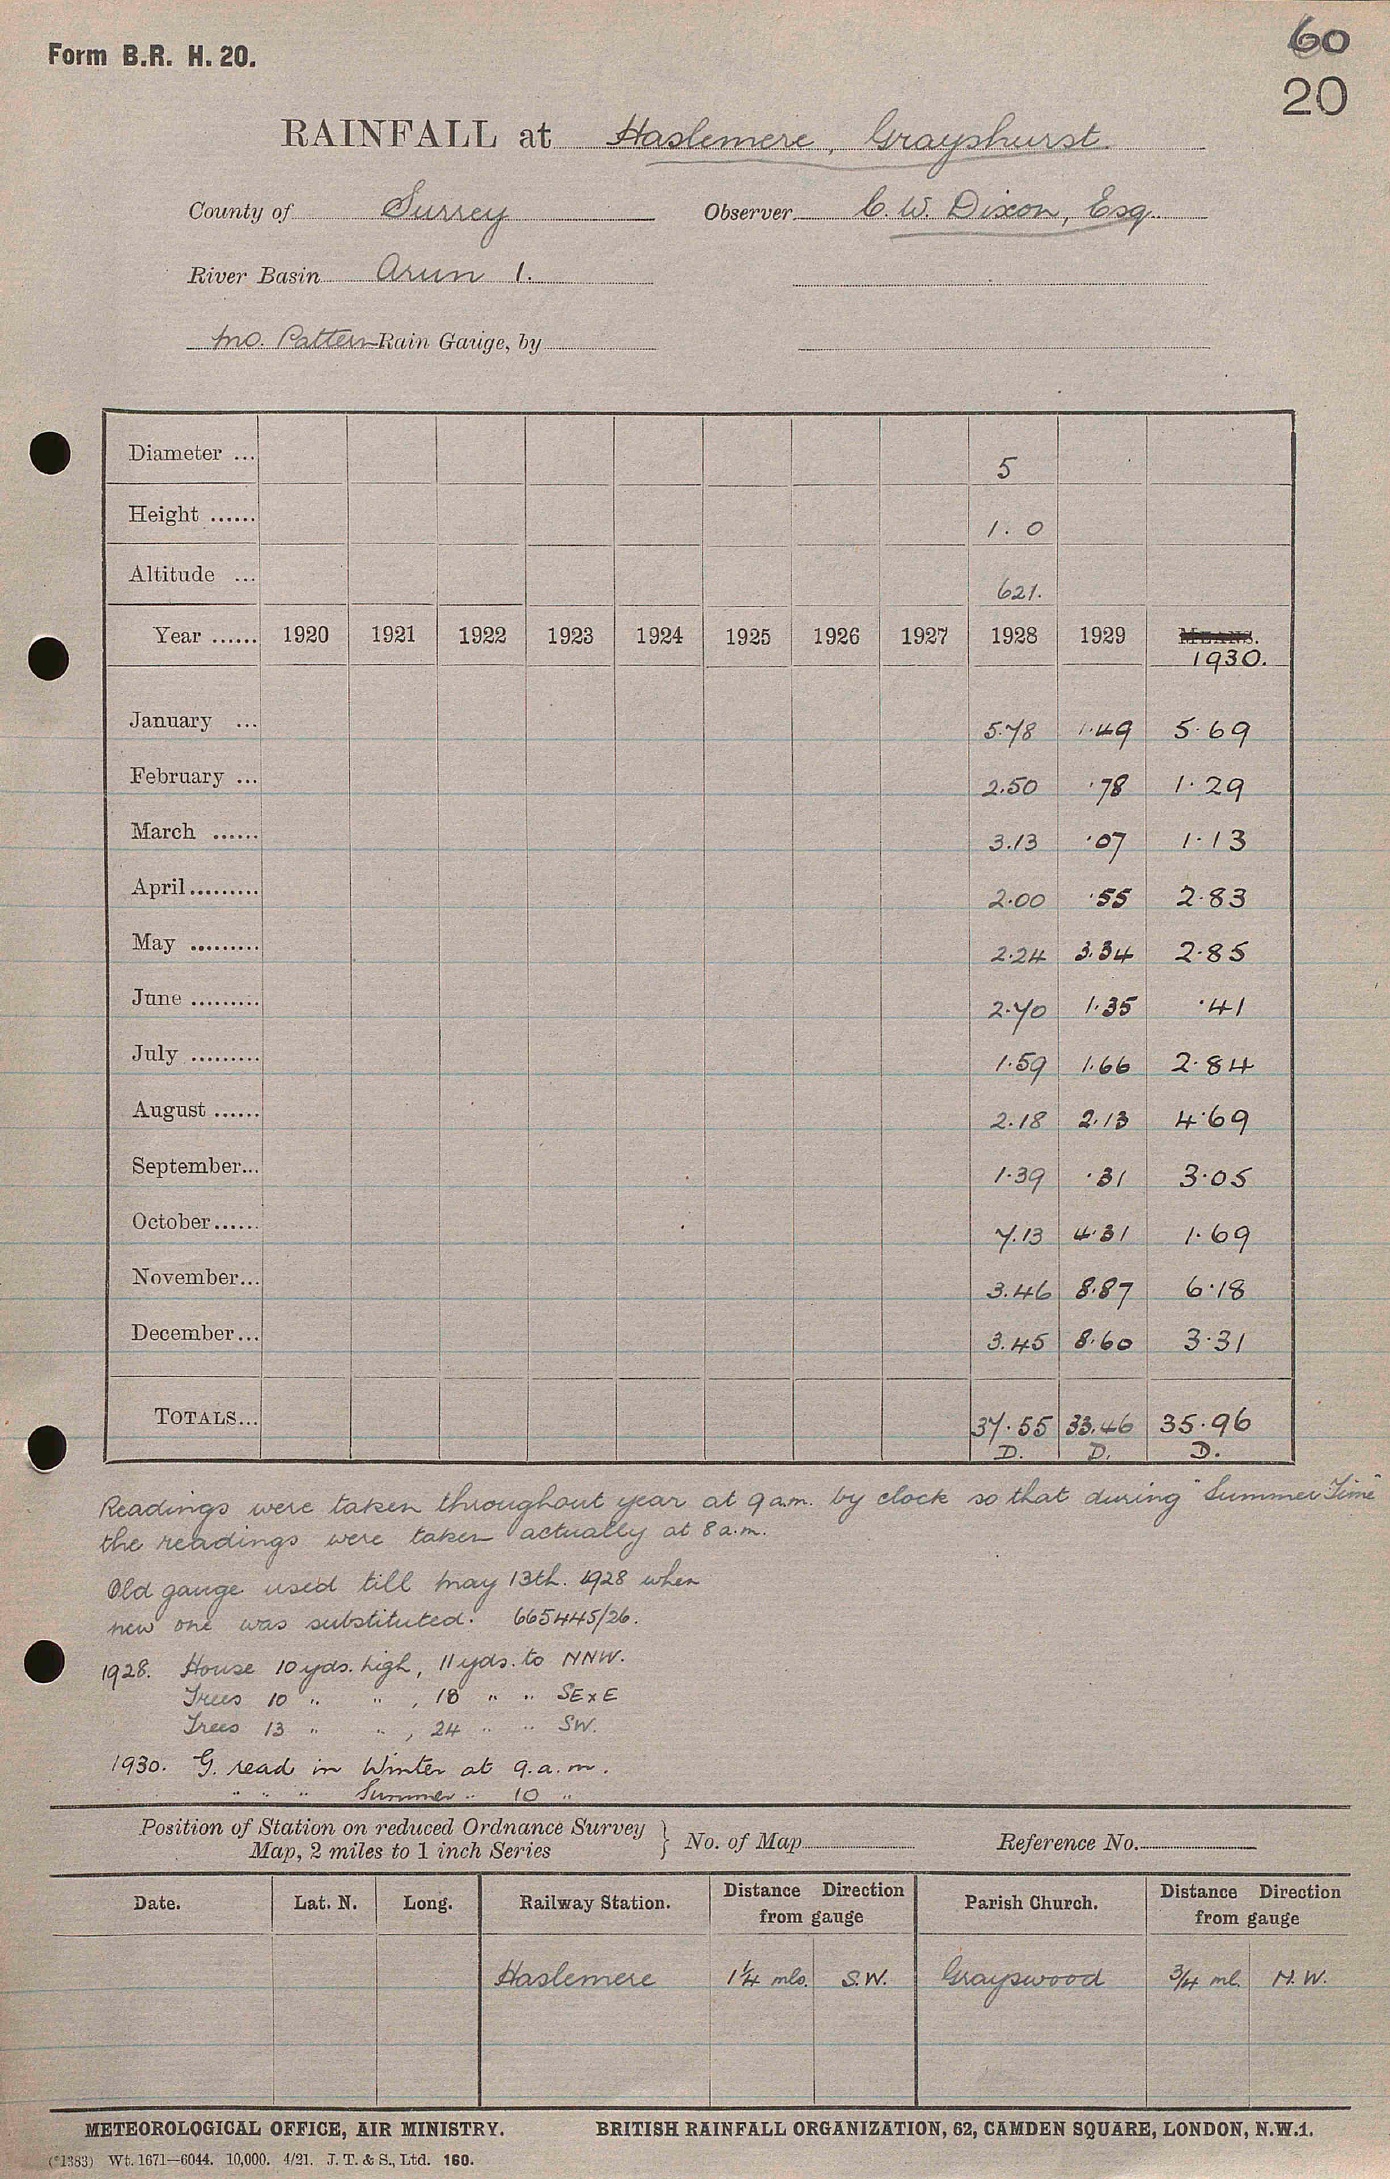 60
Form B.R. H. 20.
20
RAINFALL at Haslemere, Grayshurst.
County of Surrey Observer C. W. Dixon, Esq.
River Basin Arun 1.
Mo. Pattern Rain Gauge, by
Diameter ... 5
Height ...... 1. 0
Altitude ... 621.
Year ...... 1920 1921 1922 1923 1924 1925 1926 1927 1928 1929 MEANS.
1930.
January ... 5.78 1.49 5.69
February ... 2.50 .78 1.29
March ...... 3.13 .07 1.13
April......... 2.00 .55 2.83
May ......... 2.24 3.34 2.85
June ......... 2.70 1.35 .41
July ......... 1.59 1.66 2.84
August ...... 2.18 2.13 4.69
September... 1.39 .31 3.05
October...... 7.13 4.31 1.69
November... 3.46 8.87 6.18
December... 3.45 8.60 3.31
TOTALS... 37.55 33.46 35.96
D. D. D.
Readings were taken throughout year at 9 a.m. by clock so that during "Summer Time"
the readings were taken actually at 8 a.m.
Old gauge used till May 13th. 1928 when
new one was substituted. 665445/26.
1928. House 10 yds. high, 11 yds. to NNW.
Trees 10 " " , 18 " " SE x E
Trees 13 " " , 24 " " SW.
1930. G. read in Winter at 9. a. m.
" " " Summer " 10 "
Position of Station on reduced Ordnance Survey
Map, 2 miles to 1 inch Series } No. of Map Reference No.
Date. Lat. N. Long. Railway Station. Distance Direction from gauge Parish Church. Distance Direction from gauge
Haslemere 1¼ mls. S.W. Grayswood ¾ ml. N.W.
METEOROLOGICAL OFFICE, AIR MINISTRY. BRITISH RAINFALL ORGANIZATION, 62, CAMDEN SQUARE, LONDON, N.W.1.
(*1383) Wt. 1671—6044. 10,000. 4/21. J. T. & S., Ltd. 160.